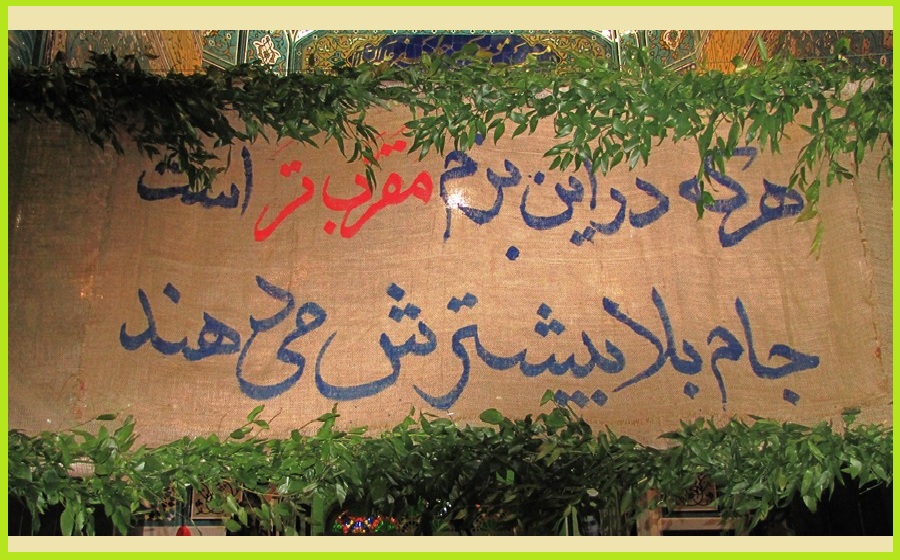 هر که در این بزم مقرب تر است
جام بلا بیشترش می دهند